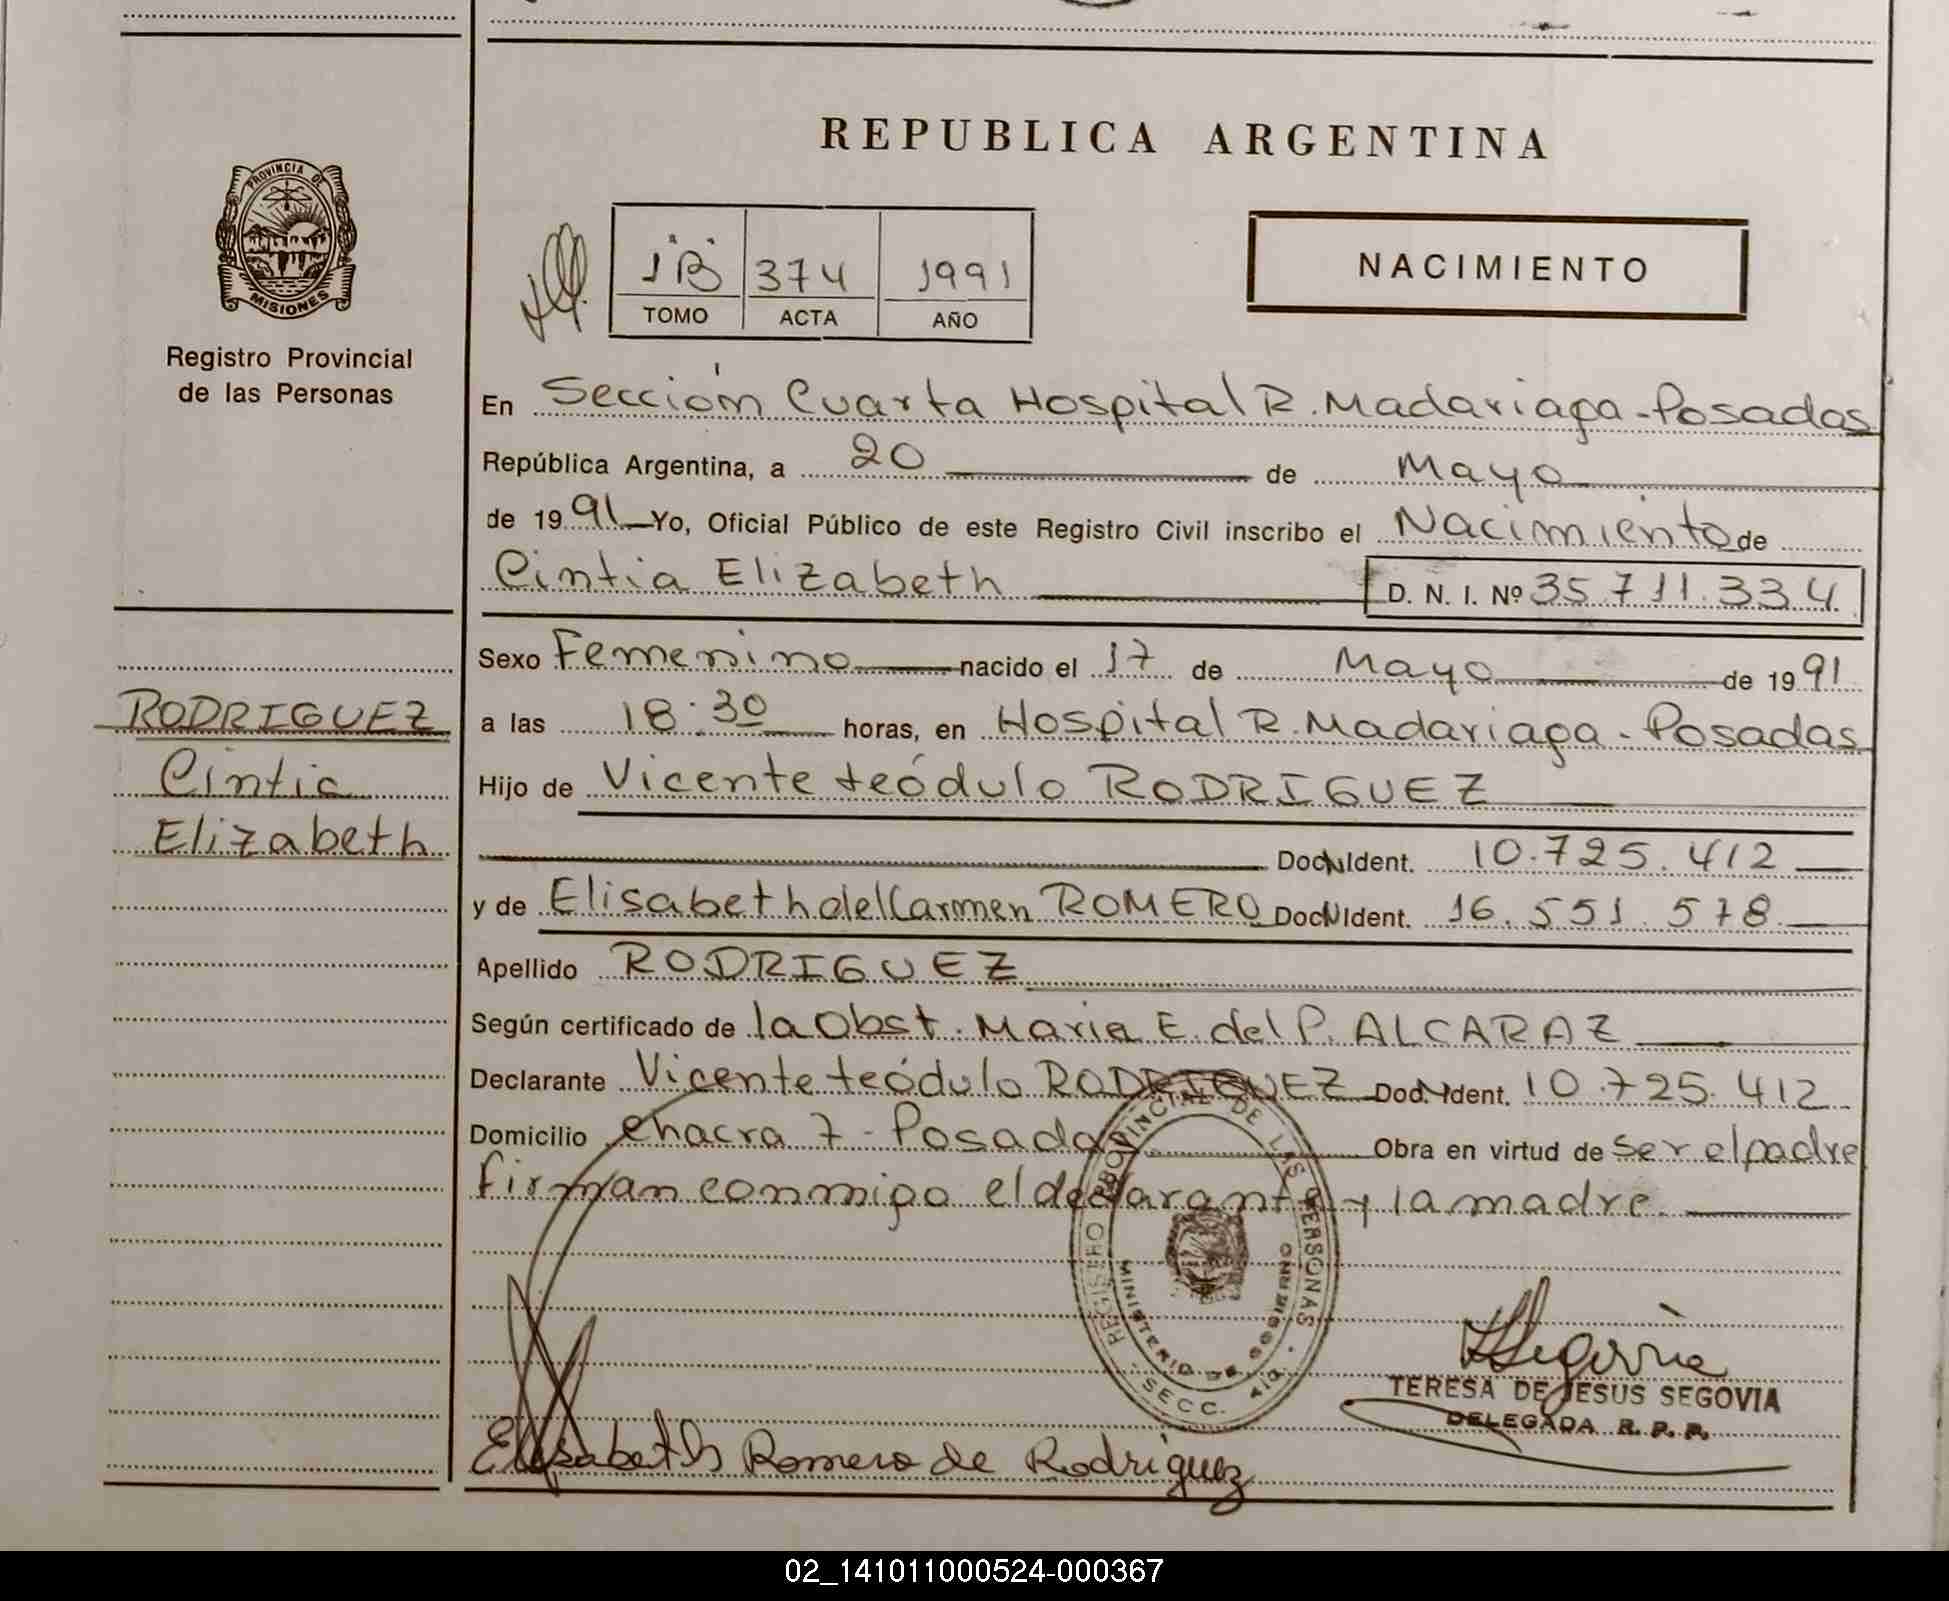 REPUBLICA ARGENTINA
PROVINCIA DE
MISIONES
Registro Provincial
de las Personas
1B 374 1991
TOMO ACTA AÑO
NACIMIENTO
En Sección Cuarta Hospital R. Madariaga - Posadas
República Argentina, a 20 de Mayo
de 1991 Yo, Oficial Público de este Registro Civil inscribo el Nacimiento de
Cintia Elizabeth D. N. I. Nº 35.711.334
Sexo Femenino nacido el 17 de Mayo de 1991
RODRIGUEZ
Cintia
Elizabeth
a las 18:30 horas, en Hospital R. Madariaga - Posadas
Hijo de Vicente teódulo RODRIGUEZ
Doc. Ident. 10.725.412
y de Elisabeth del Carmen ROMERO Doc. Ident. 16.551.578
Apellido RODRIGUEZ
Según certificado de la Obst. Maria E. del P. ALCARAZ
Declarante Vicente teódulo RODRIGUEZ Doc. Ident. 10.725.412
Domicilio Chacra 7 - Posadas Obra en virtud de ser el padre
firman conmigo el declarante y la madre.
REGISTRO PROVINCIAL DE LAS PERSONAS
MINISTERIO DE GOBIERNO
SECC. 4ta
Segovia
TERESA DE JESUS SEGOVIA
DELEGADA R. P. P.
Elisabeth Romero de Rodriguez
02_141011000524-000367